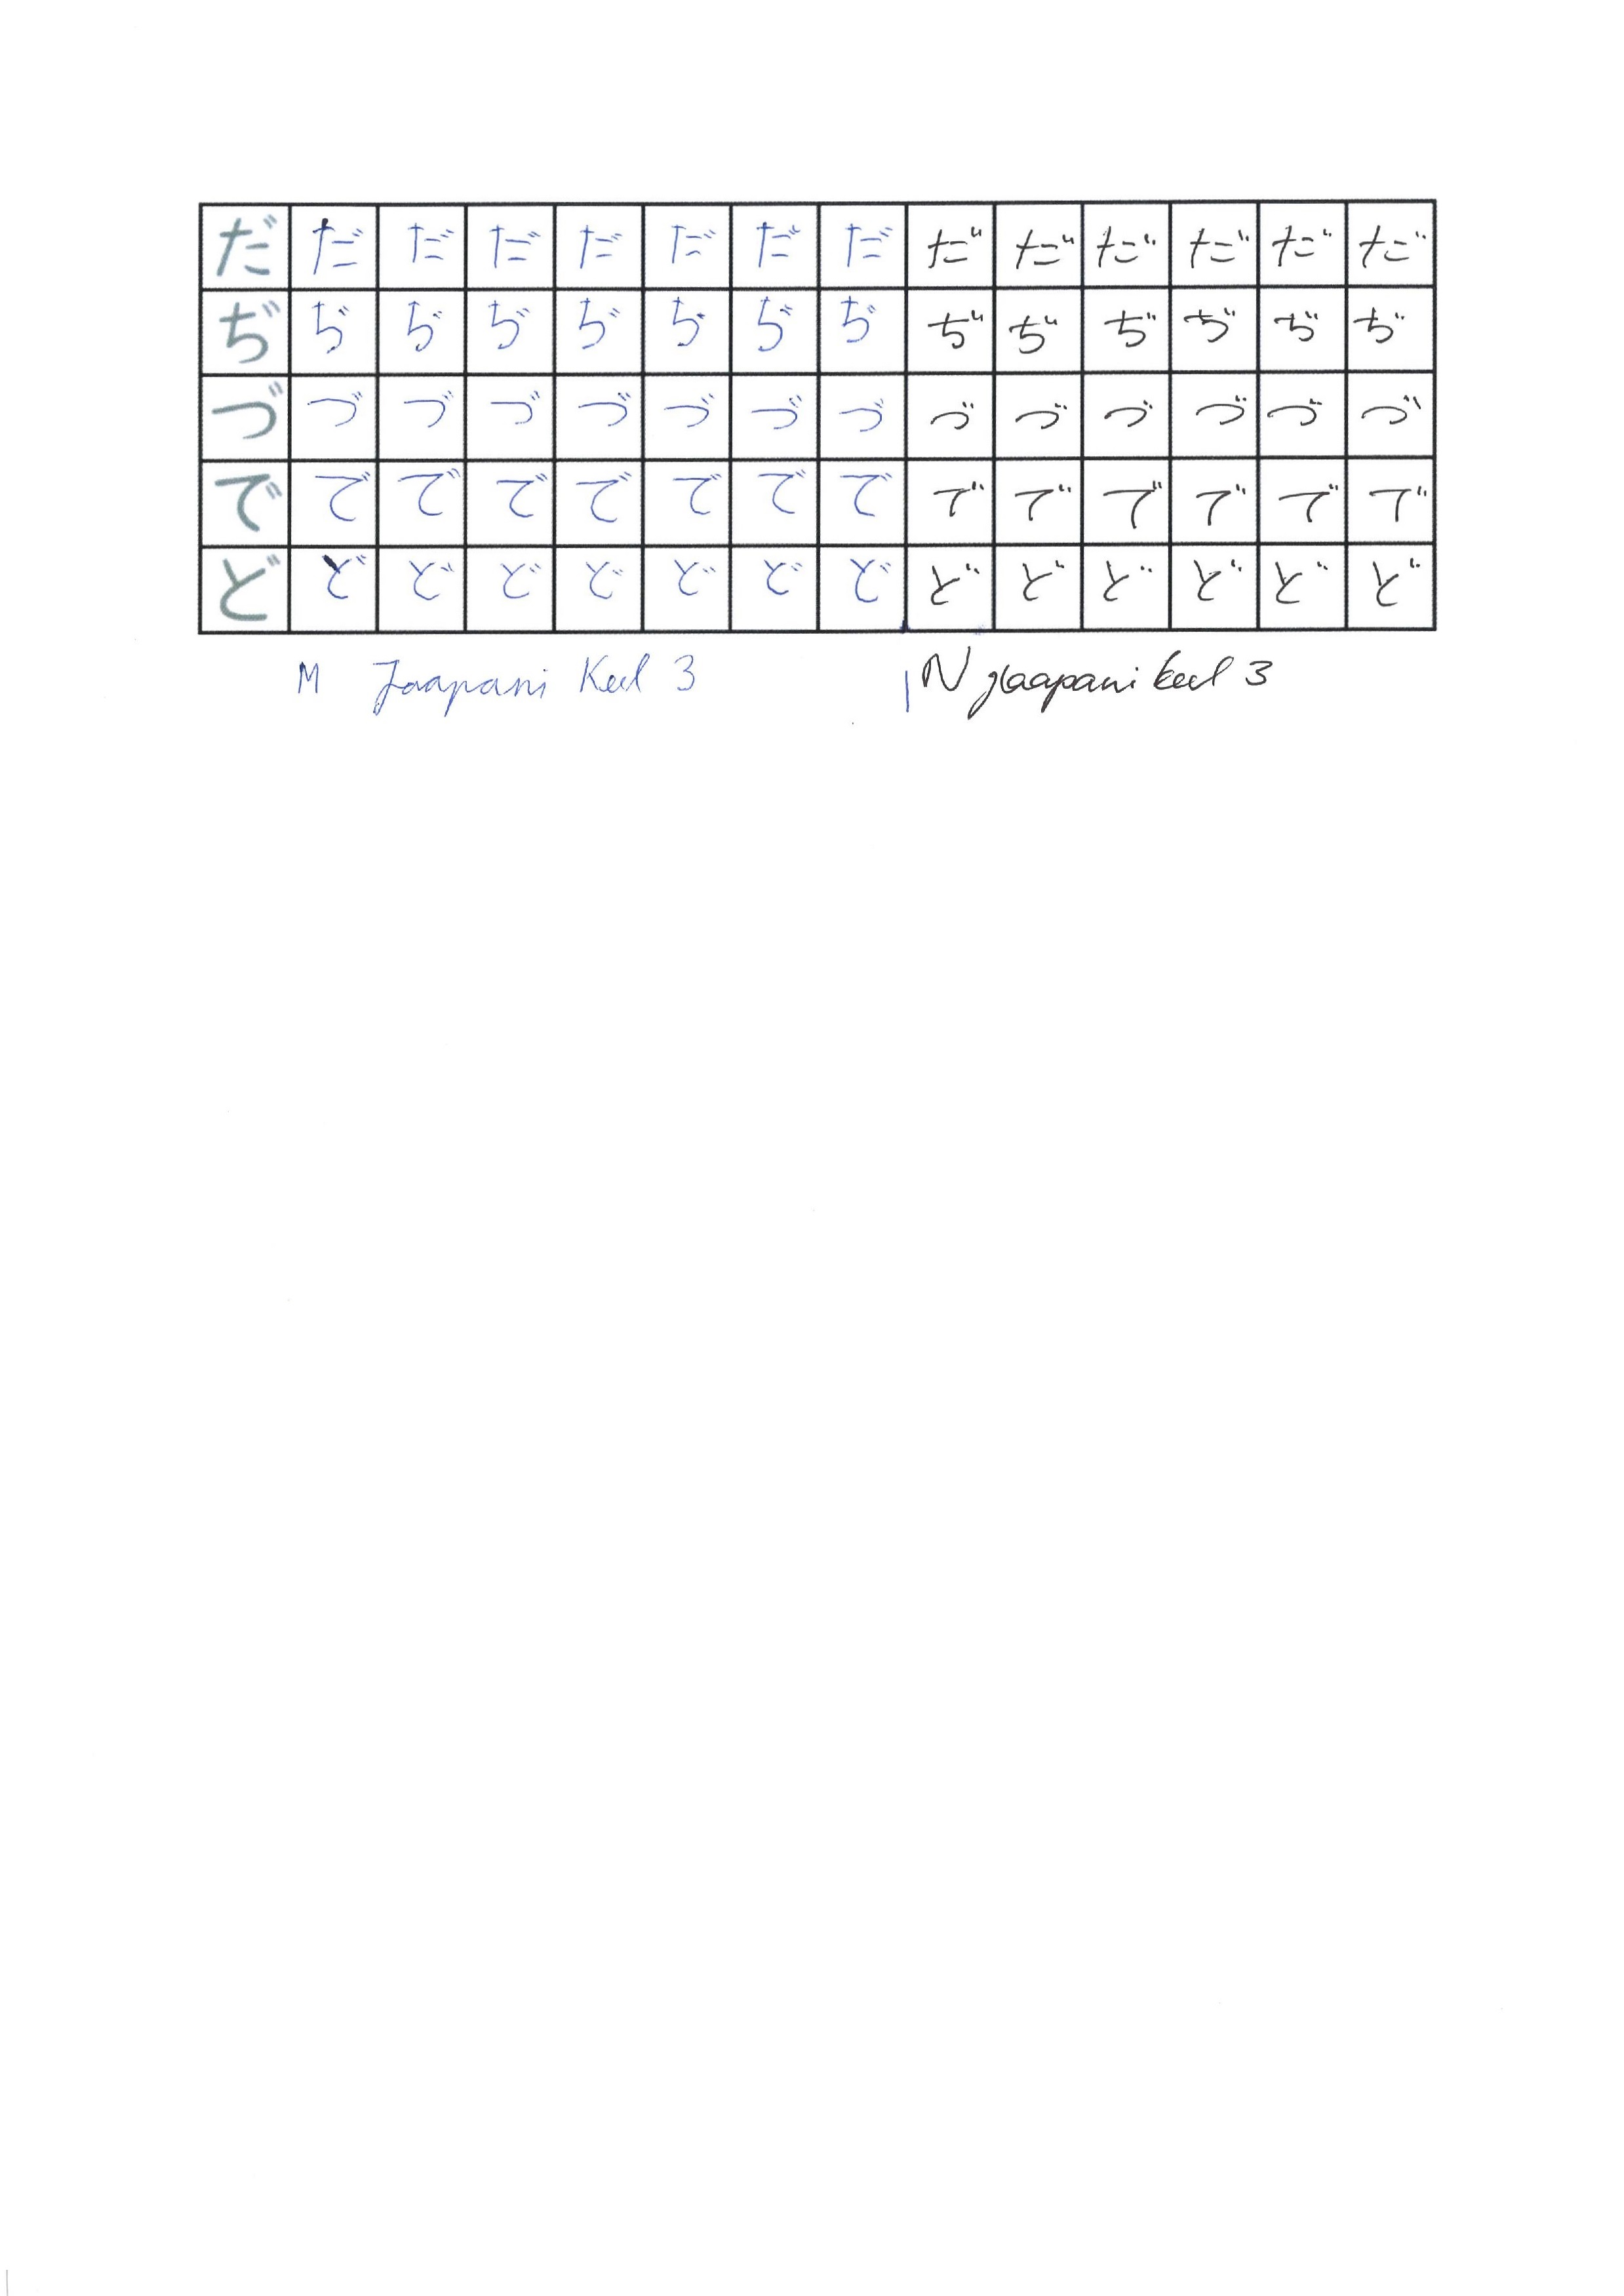 だ だ だ だ だ だ だ だ だ だ だ だ だ だ
ぢ ぢ ぢ ぢ ぢ ぢ ぢ ぢ ぢ ぢ ぢ ぢ ぢ ぢ
づ づ づ づ づ づ づ づ づ づ づ づ づ づ
で で で で で で で で で で で で で で
ど ど ど ど ど ど ど ど ど ど ど ど ど ど
M Jaapani Keel 3 | N Jaapani keel 3